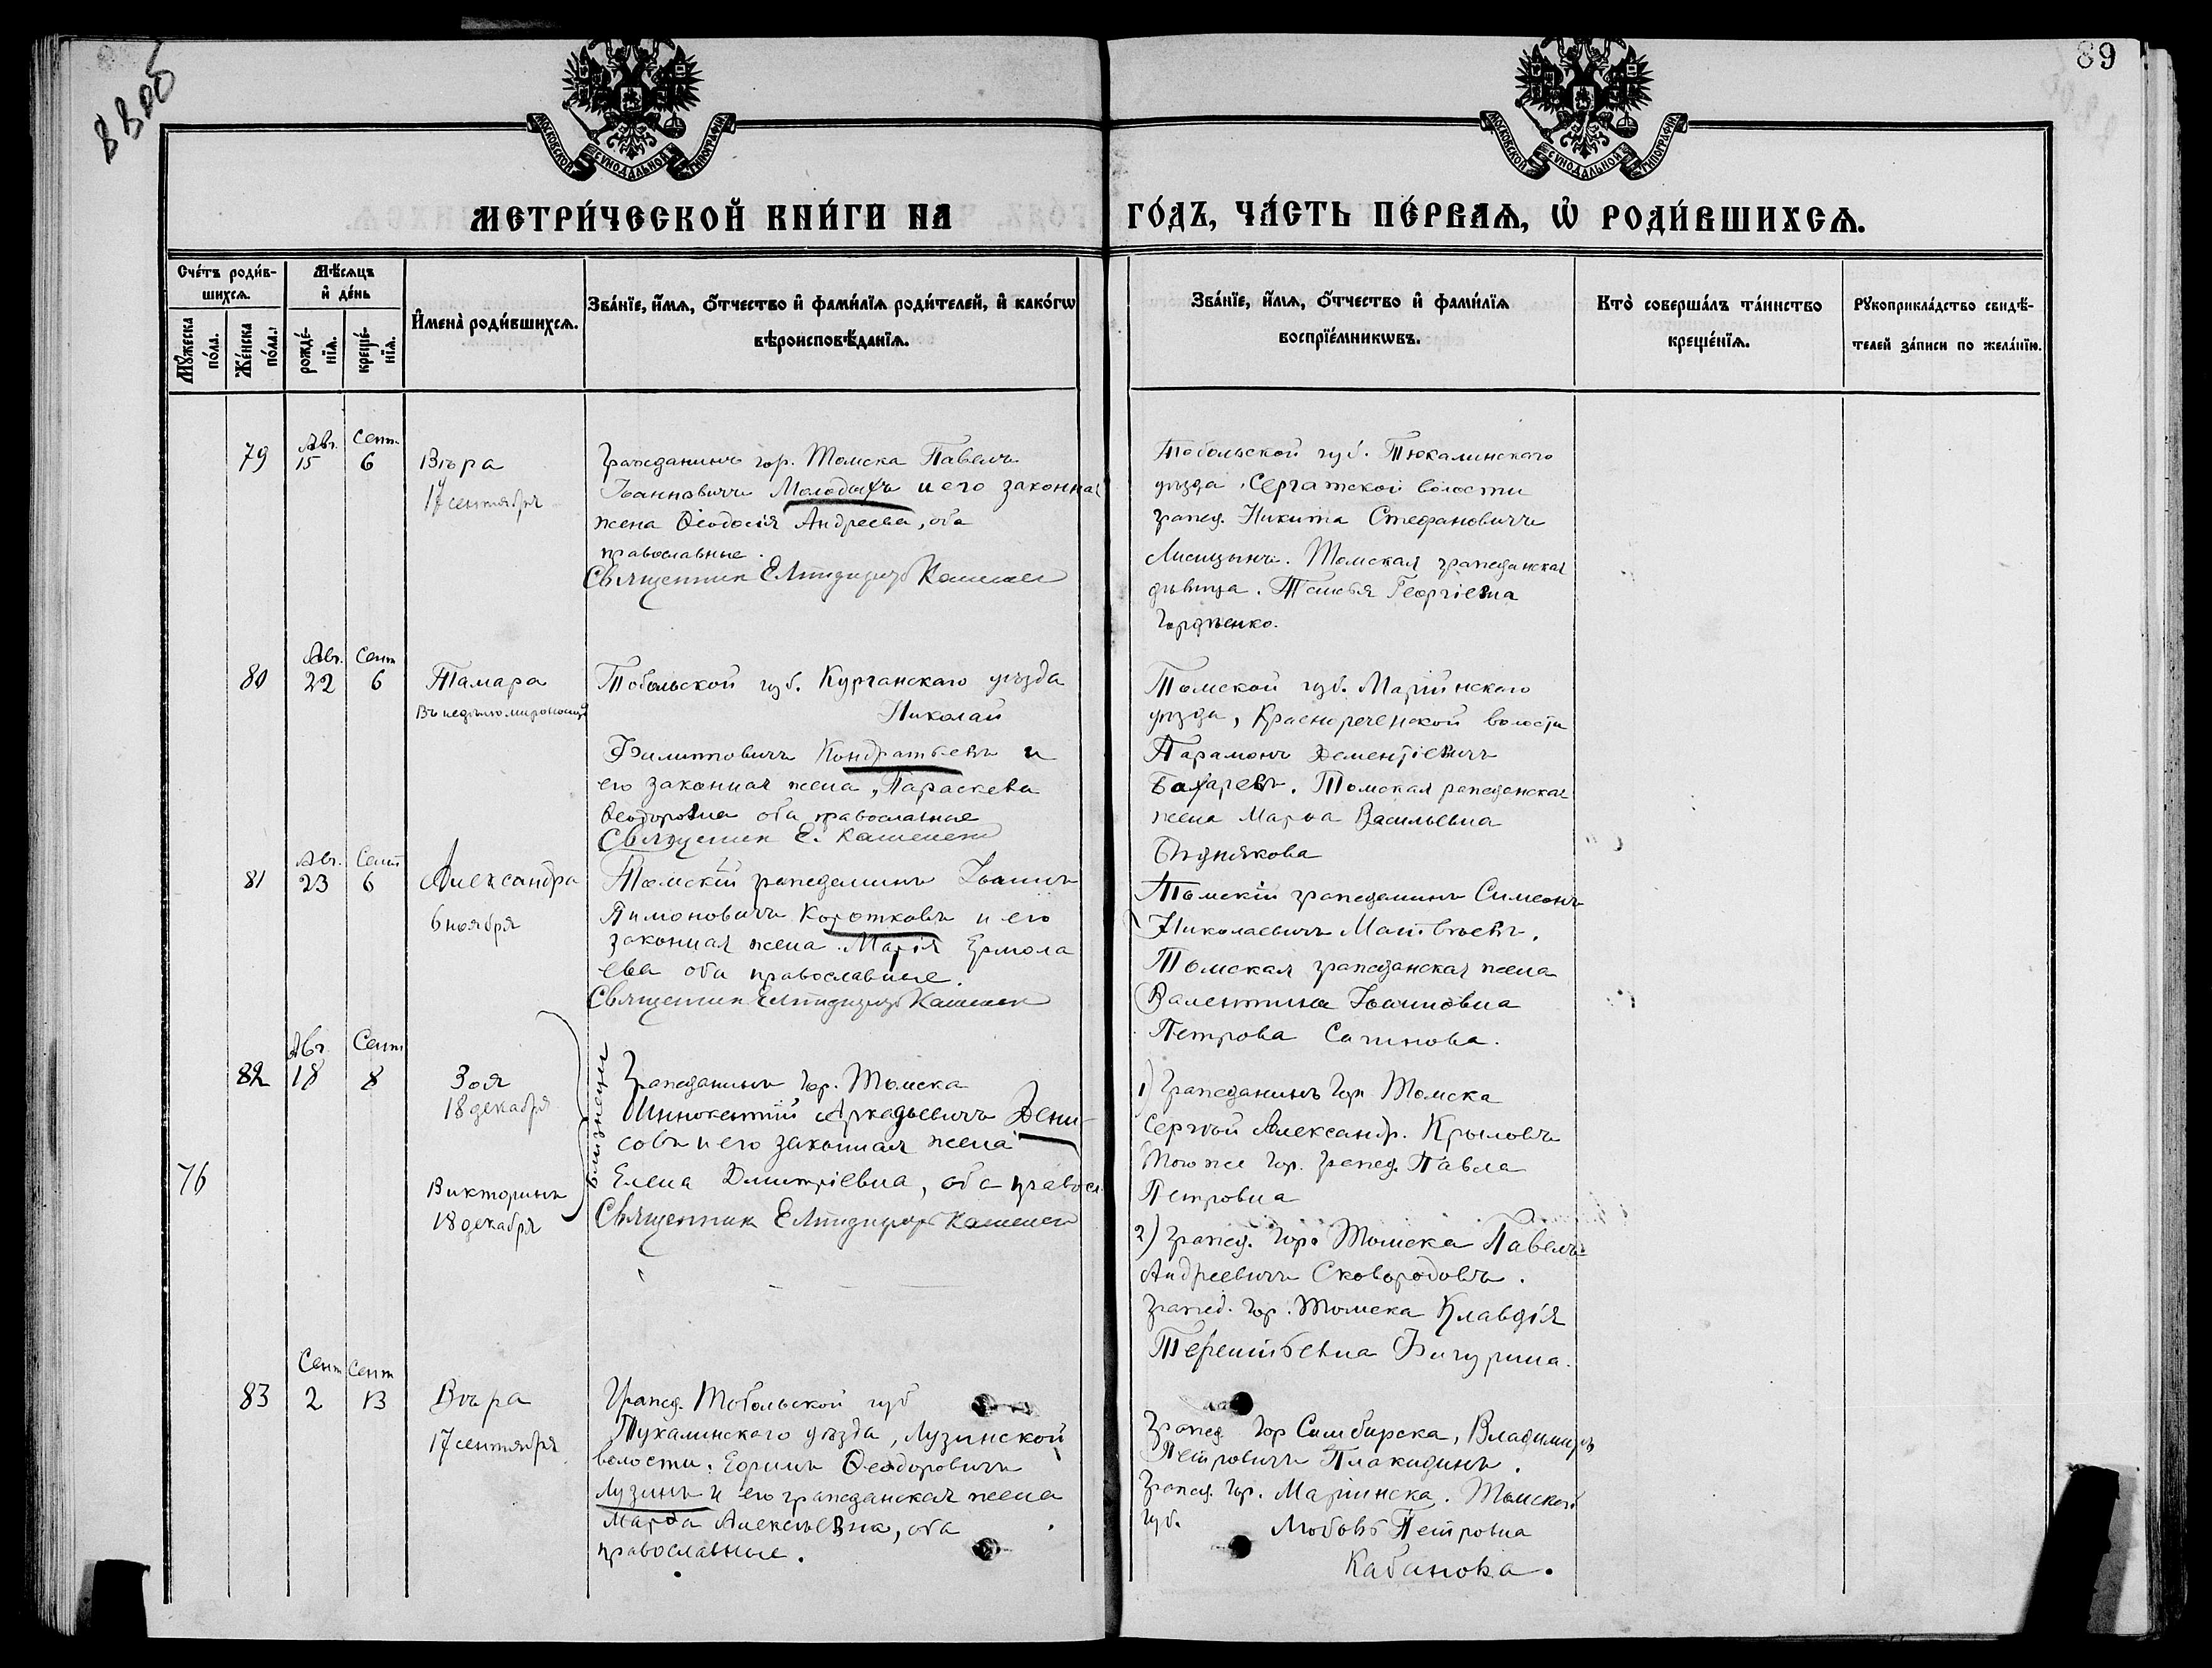 88об
89
МОСКОВСКОЙ СѴНОДАЛЬНОЙ ТИПОГРАФІИ
МОСКОВСКОЙ СѴНОДАЛЬНОЙ ТИПОГРАФІИ
МЕТРИ́ЧЕСКОЙ КНИ́ГИ НА
ГО́ДЪ, ЧА́СТЬ ПЕ́РВАѦ, Ѡ҆ РОДИ́ВШИХСѦ.
Сче́тъ роди́в-
шихсѧ.
Мꙋ́жеска
по́ла.
Же́нска
по́ла.
Мѣ́сѧцъ
и҆ де́нь
рожде́-
нїѧ.
креще́-
нїѧ.
И҆мена̀ роди́вшихсѧ.
Зва́нїе, и҆́мѧ, ѻ҆́тчество и҆ фами́лїѧ роди́телей, и҆ како́гѡ
вѣроисповѣ́данїѧ.
Зва́нїе, и҆́мѧ, ѻ҆́тчество и҆ фами́лїѧ
воспрїе́мникѡвъ.
Кто̀ соверша́лъ та́инство
креще́нїѧ.
Рꙋкоприкла́дство свидѣ́-
телей за́писи по жела́нїю.
79
Авг. 15
Сент. 6
Вѣра
17 сентября
Гражданинъ гор. Томска Павелъ
Іоанновичъ Молодыхъ и его законная
жена Ѳеодосія Андреева, оба
православные.
Священник Елпидифор Кашелев
Тобольской губ. Тюкалинскаго
уѣзда, Сергатской волости
гражд. Никита Стефановичъ
Лисицынъ. Томская гражданская
дѣвица. Георгіевна
Гордѣенко.
80
Авг. 22
Сент 6
Тамара
Въ недѣлю мироносицъ
Тобольской губ. Курганскаго уѣзда
Николай
Филипповичъ Кондратьевъ и
его законная жена, Параскева
Ѳеодоровна оба православные
Священник Е. Кашелев
Томской губ. Маріинскаго
уѣзда, Краснореченской волости
Парамонъ Дементіевичъ
Бахаревъ. Томская гражданская
жена Марѳа Васильевна
81
Авг. 23
Сент 6
Александра
6 ноября
Томскій гражданинъ Іоаннъ
Пимоновичъ Коротковъ и его
законная жена Марія Ермола
ева оба православные.
Священник Елпидифор Кашелев
Томскій гражданинъ Симеонъ
Николаевичъ Матвѣевъ.
Томская гражданская жена
Валентина Іоанновна
Петрова
82
Авг. 18
Сент 8
Зоя
18 декабря
76
Викторинъ
18 декабря
близнецы
Гражданинъ Гор. Томска
Иннокентій Аркадьевичъ Дени-
совъ и его законная жена
Елена Димитріевна, оба правосл.
Священник Елпидифор Кашелев
1) Гражданинъ Гор. Томска
Сергѣй Александр. Крыловъ
Того же Гор. гражд. Павла
Петровна
2) гражд. Гор. Томска Павелъ
Андреевичъ Сковородовъ.
гражд. гор. Томска Клавдія
Терентьевна Фигурина.
83
Сент 2
Сент 13
Вѣра
17 сентября
Гражд. Тобольской губ
Тукалинскаго уѣзда, Лузинской
волости. Ефимъ Ѳеодоровичъ
Лузинъ и его гражданская жена
Марѳа Алексѣевна, оба
православные.
Гражд. Гор Симбирска, Владимиръ
Петровичъ Плакидинъ.
Гражд. Гор. Маріинска. Томской
губ. Любовь Петровна
Кабанова.